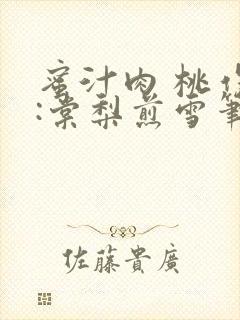 蜜汁肉桃作
:棠梨煎雪筆
佐藤貴廣